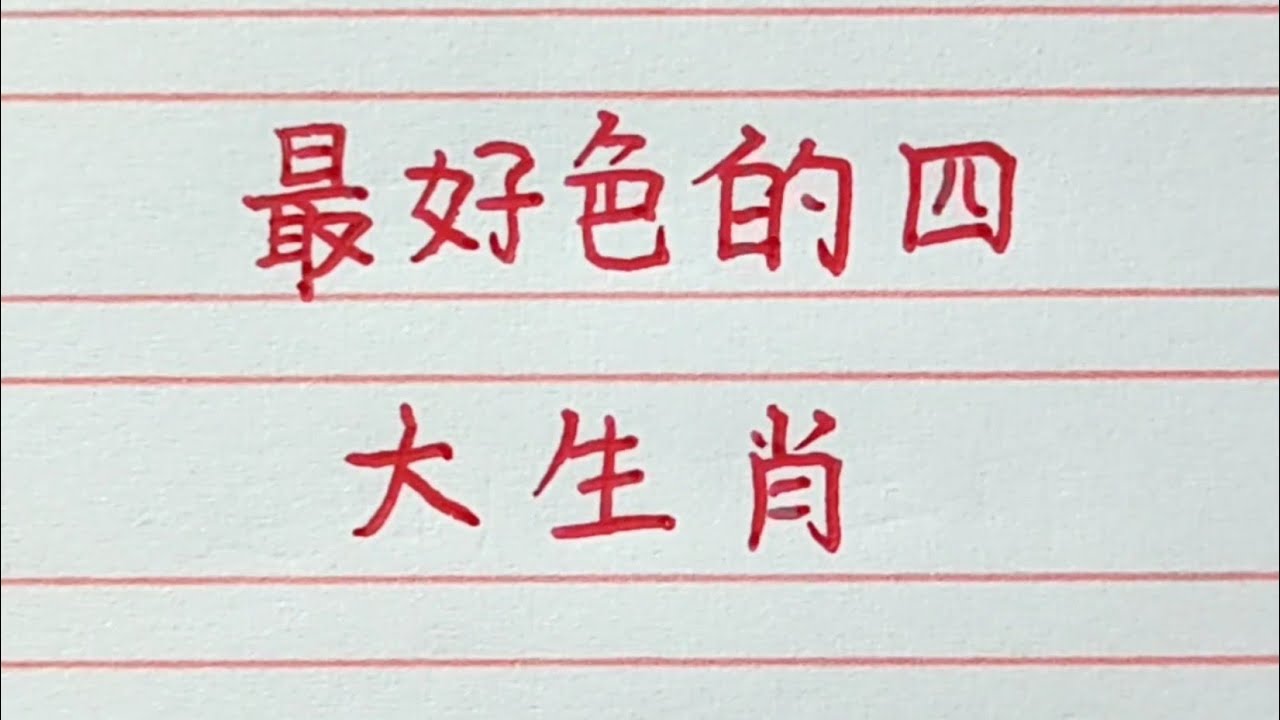 最好色的四
大生肖